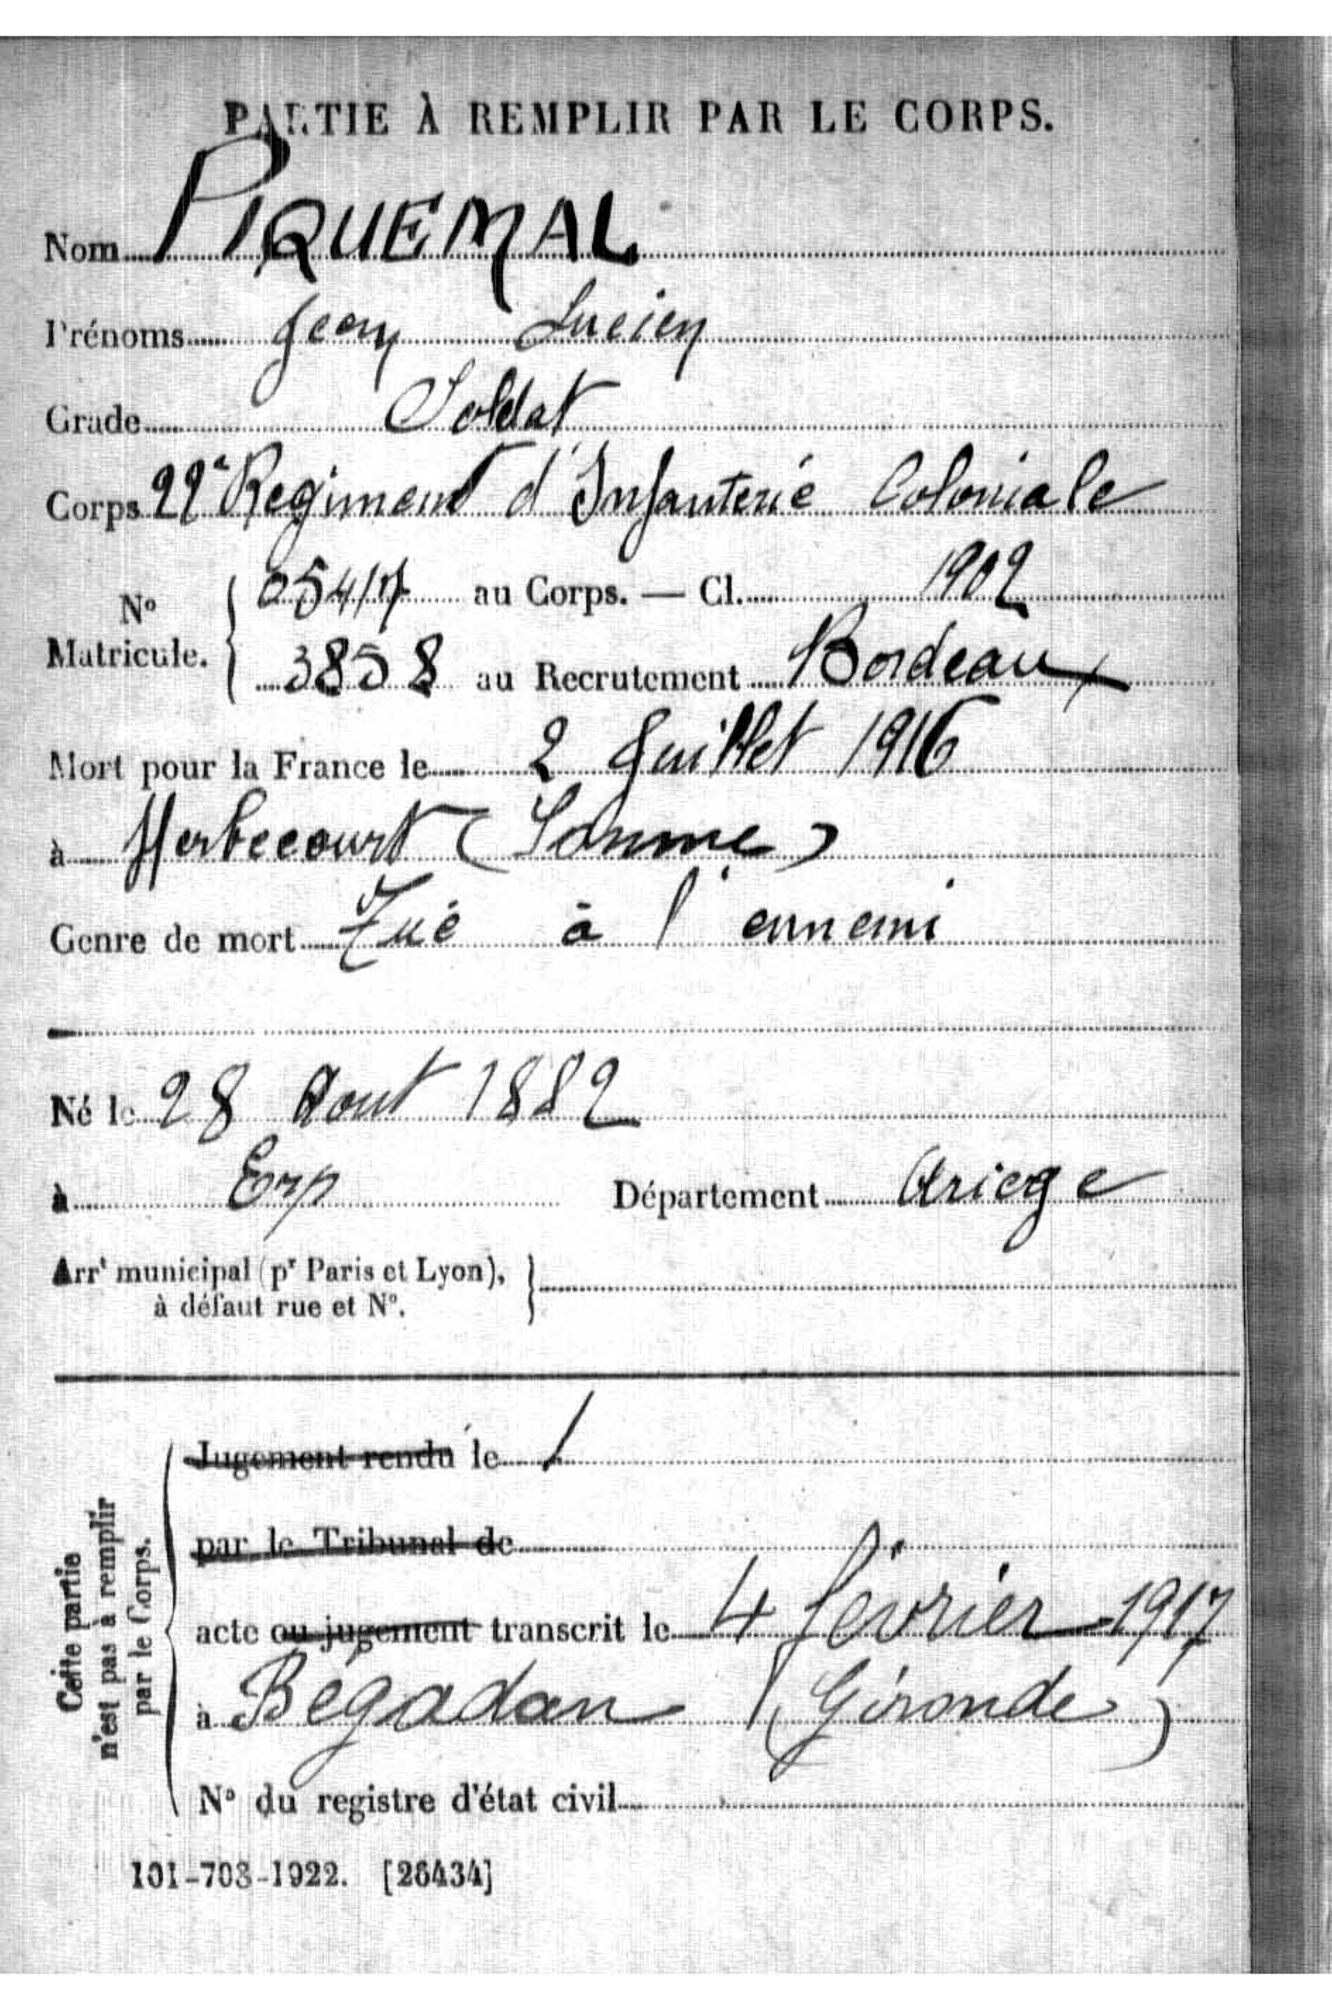 PARTIE À REMPLIR PAR LE CORPS.
Nom PIQUEMAL
Prénoms Jean Lucien
Grade Soldat
Corps 22e Regiment d'Infanterie Coloniale
No Matricule. 05417 au Corps. — Cl. 1902
3858 au Recrutement Bordeaux
Mort pour la France le 2 Juillet 1916
à Herbecourt (Somme)
Genre de mort Tué à l'ennemi
Né le 28 Aout 1882
à Erp Département Ariege
Arrt municipal (pr Paris et Lyon), à défaut rue et No.
Cette partie n'est pas à remplir par le Corps.
Jugement rendu le /
par le Tribunal de
acte ou jugement transcrit le 4 février 1917
à Bégadan (Gironde)
No du registre d'état civil
101-708-1922. [26434]